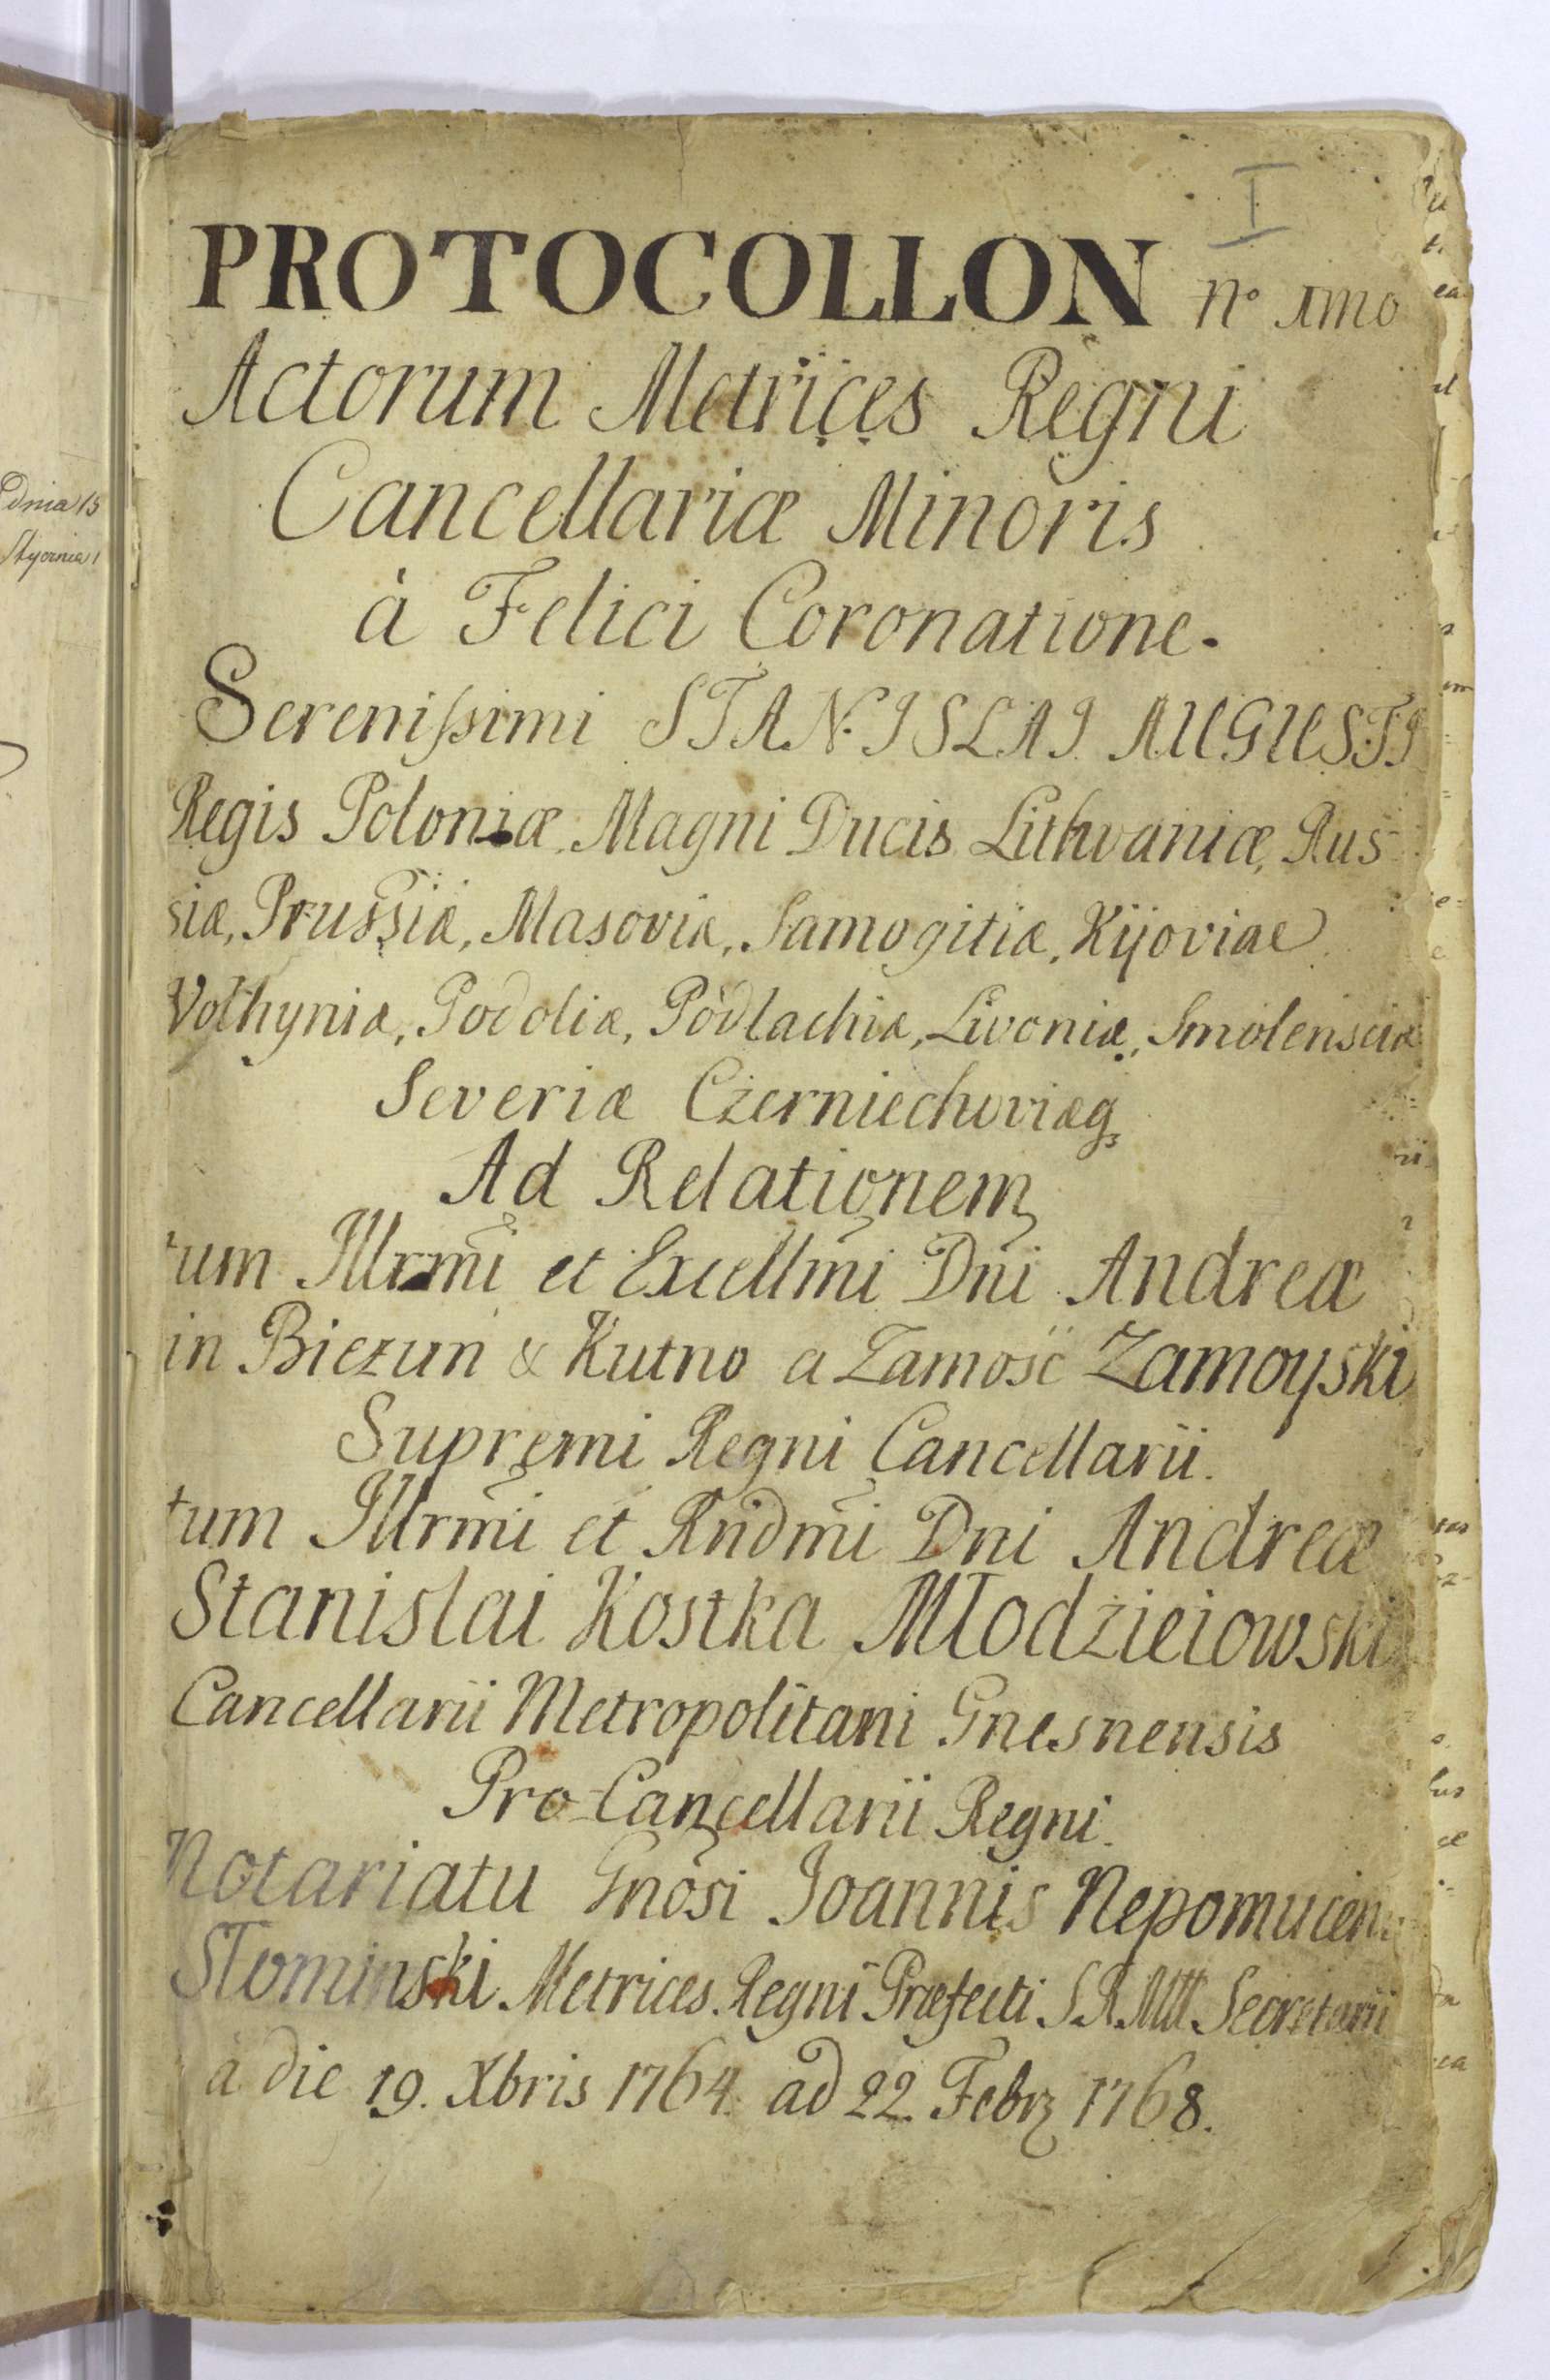 I
PROTOCOLLON No Imo
Actorum Metrices Regni
Cancellariæ Minoris
à Felici Coronatione.
Serenissimi STANISLAI AUGUSTI
Regis Poloniæ, Magni Ducis Lithvaniæ, Rus
siæ, Prussiæ, Masoviæ, Samogitiæ, Kijoviae
Volhyniæ, Podoliæ, Podlachiæ, Livoniæ, Smolensciæ
Severiæ Czerniechoviæq
Ad Relationem
um Illrmi et Excellmi Dni Andreæ
in Biezun & Kutno a Zamość Zamoyski
Supremi Regni Cancellarii.
tum Illrmi et Rndmi Dni Andreæ
Stanislai Kostka Młodzieiowski
Cancellarii Metropolitani Gnesnensis
Pro-Cancellarii Regni.
Notariatu Gnosi Joannis Nepomuceni
Słominski Metrices Regni Præfecti S.R.Mtt Secretarii
à die 19. Xbris 1764. ad 22. Febrz 1768.
dnia 15
Stycznia